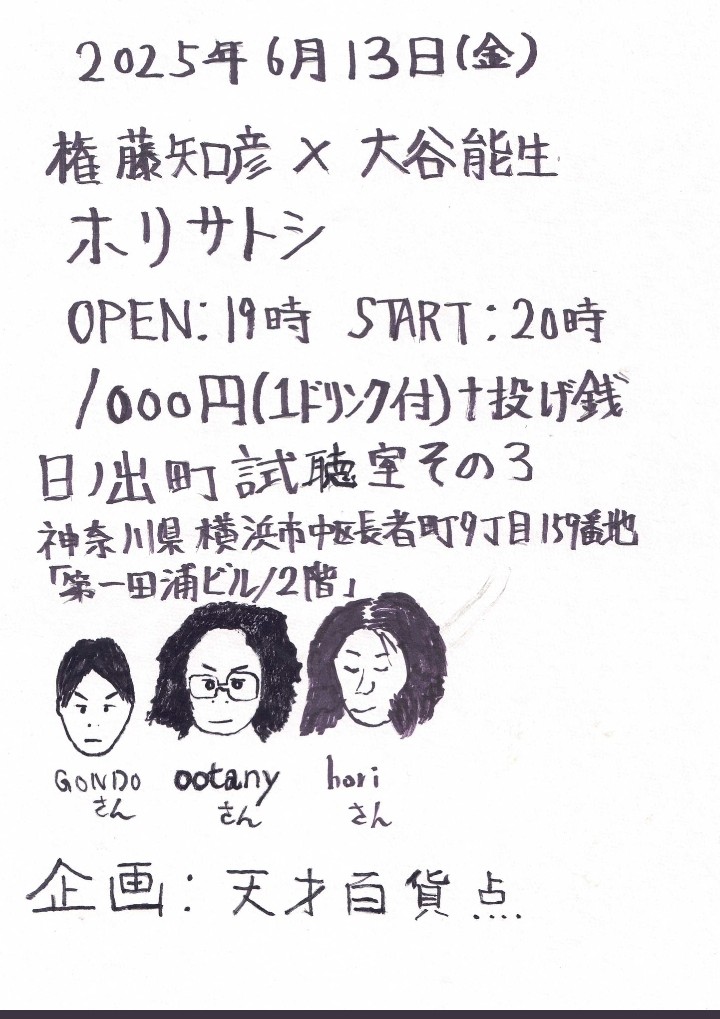 2025年6月13日(金)
権藤知彦 × 大谷能生
ホリサトシ
OPEN:19時 START:20時
1000円(1ドリンク付)+投げ銭
日ノ出町 試聴室その3
神奈川県横浜市中区長者町9丁目159番地
「第一田浦ビル/2階」
GONDO ootany hori
さん さん さん
企画:天才百貨点